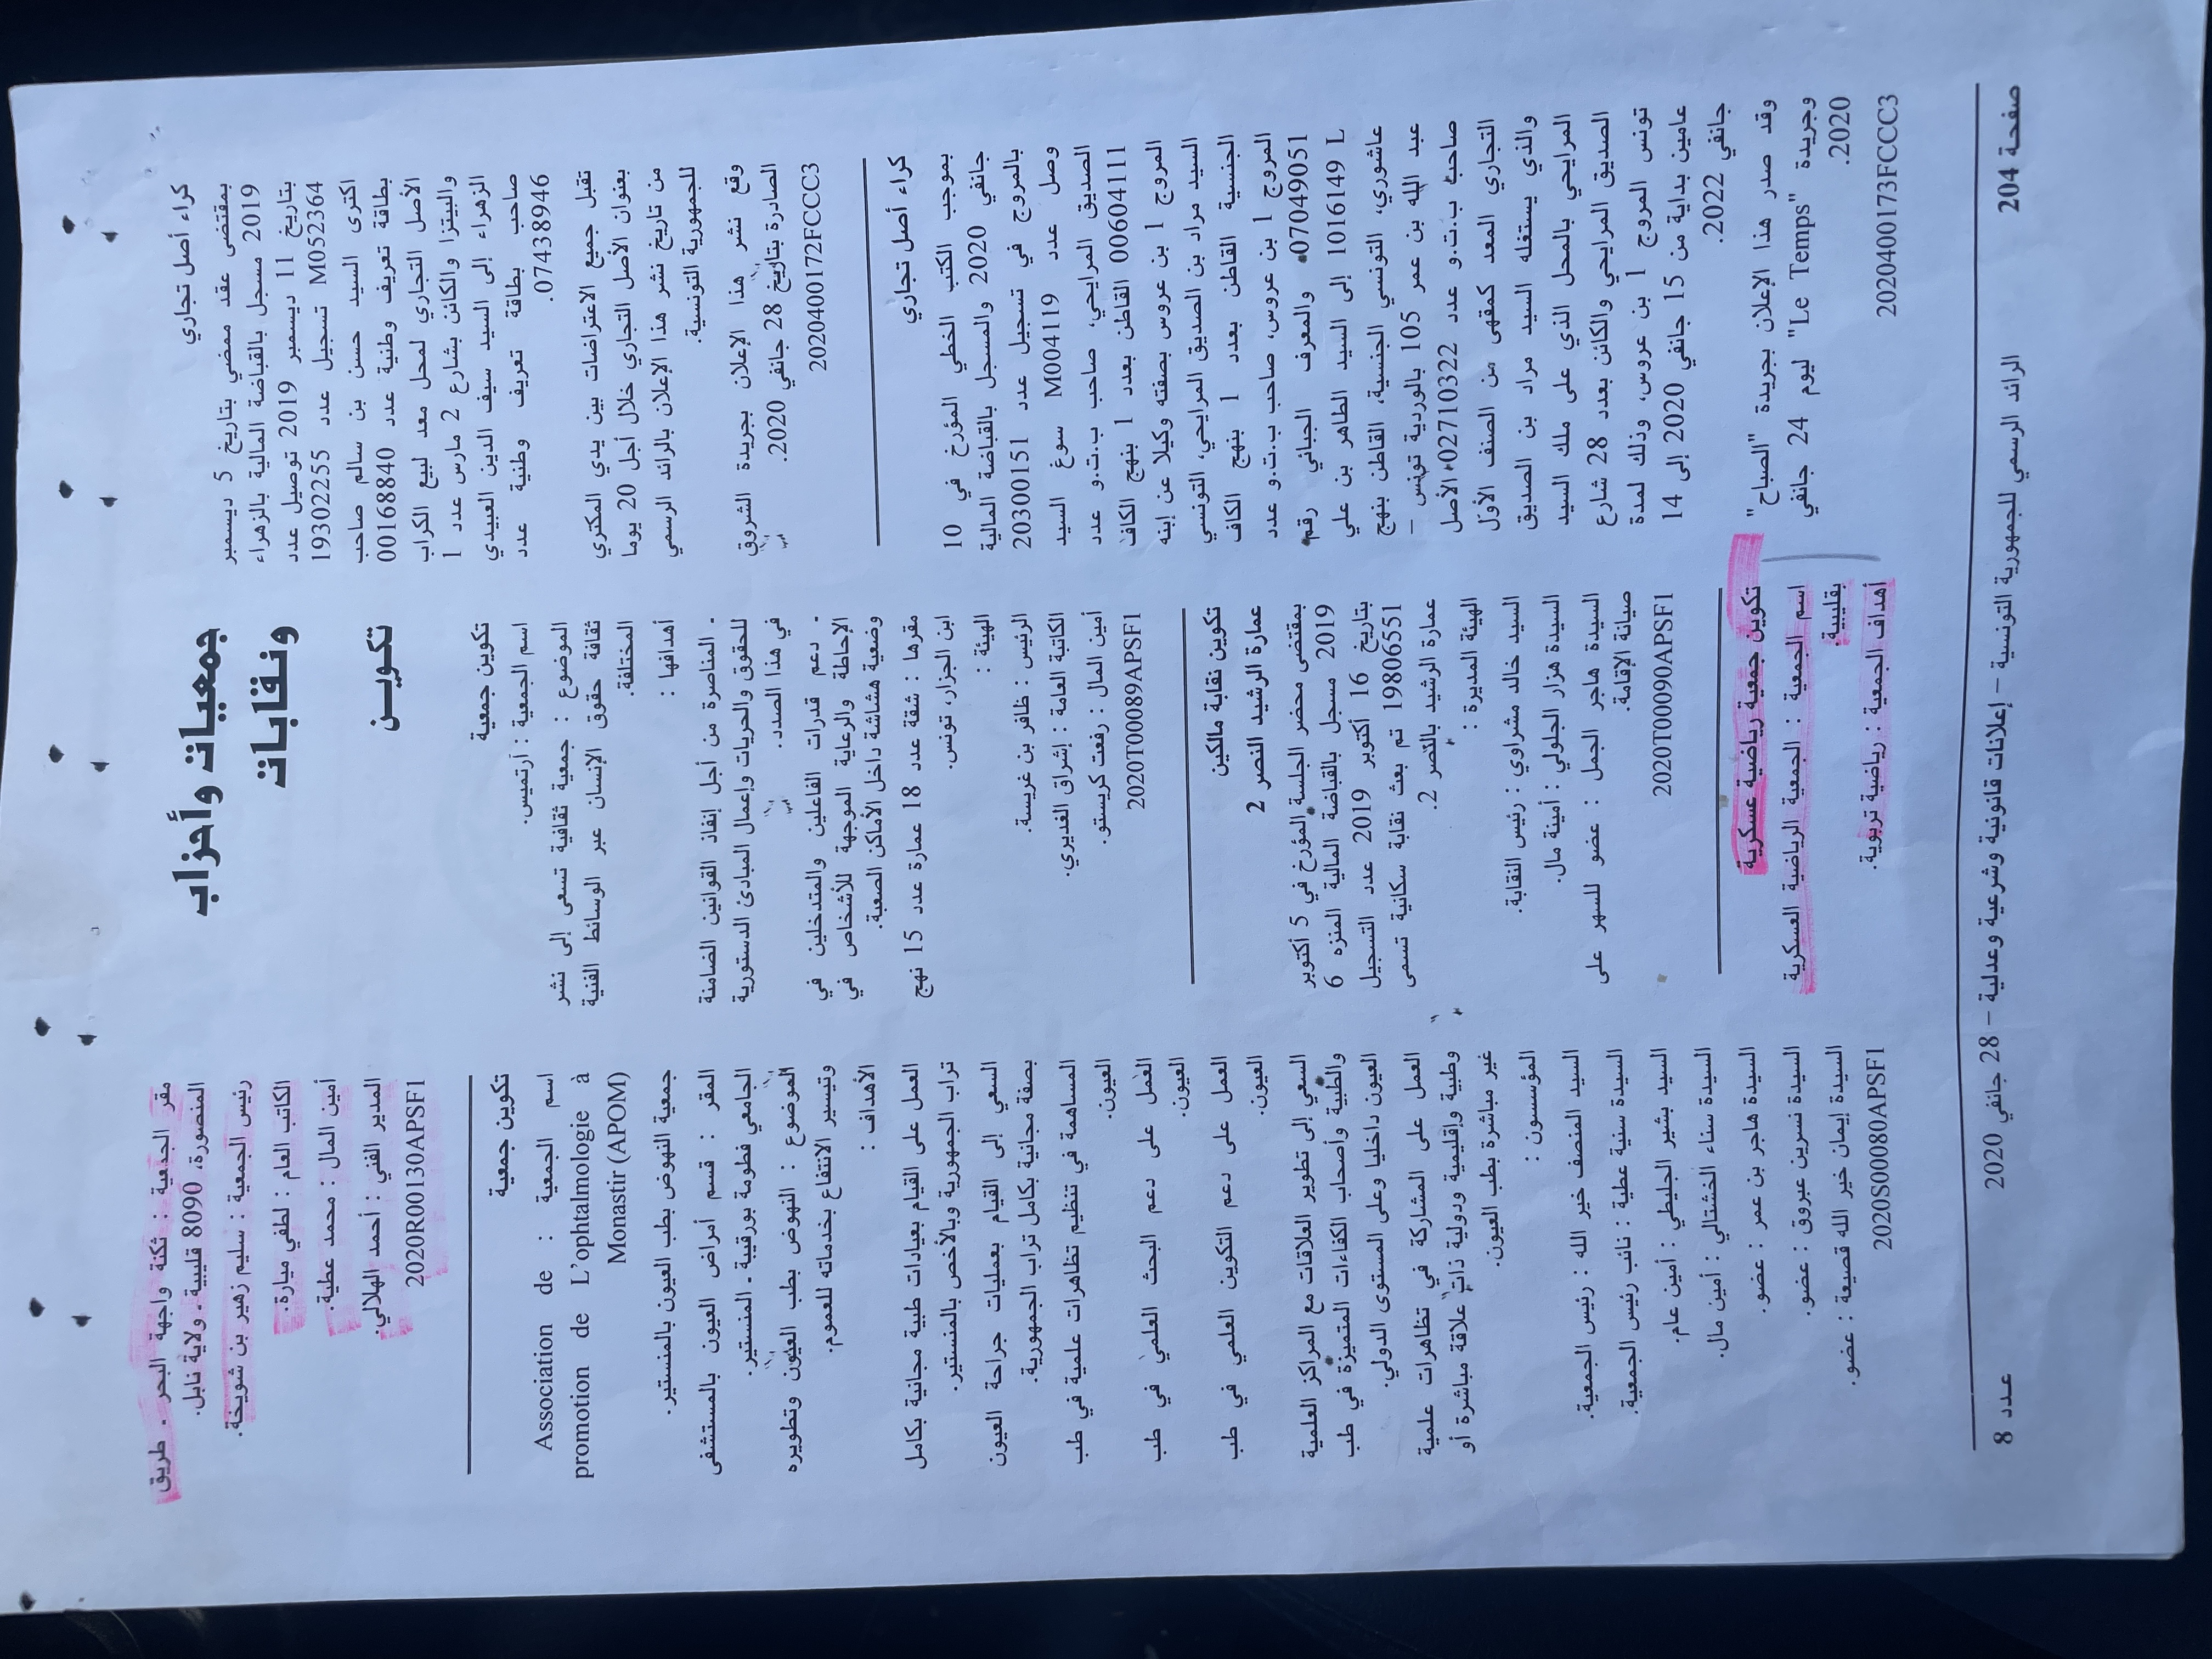 كراء أصل تجاري
بمقتضى عقد ممضي بتاريخ 5 ديسمبر
2019 مسجل بالقباضة المالية بالزهراء
بتاريخ 11 ديسمبر 2019 توصيل عدد
M052364 تسجيل عدد 19302255
اكترى السيد حسن بن سالم صاحب
بطاقة تعريف وطنية عدد 00168840
الأصل التجاري لمحل معد لبيع الكراب
والبيتزا والكائن بشارع 2 مارس عدد 1
الزهراء إلى السيد سيف الدين العبيدي
صاحب بطاقة تعريف وطنية عدد
07438946.
تقبل جميع الاعتراضات بين يدي المكتري
بعنوان الأصل التجاري خلال أجل 20 يوما
من تاريخ نشر هذا الإعلان بالرائد الرسمي
للجمهورية التونسية.
وقع نشر هذا الإعلان بجريدة الشروق
الصادرة بتاريخ 28 جانفي 2020.
2020400172FCCC3
كراء أصل تجاري
بموجب الكتب الخطي المؤرخ في 10
جانفي 2020 والمسجل بالقباضة المالية
بالمروج في تسجيل عدد 20300151
وصل عدد M004119 سوغ السيد
الصديق المرايحي، صاحب ب.ت.و عدد
00604111 القاطن بعدد 1 بنهج الكاف
المروج 1 بن عروس بصفته وكيلا عن إبنه
السيد مراد بن الصديق المرايحي، التونسي
الجنسية القاطن بعدد 1 بنهج الكاف
المروج 1 بن عروس، صاحب ب.ت.و عدد
07049051 والمعرف الجبائي رقم
1016149 L إلى السيد الطاهر بن علي
عاشوري، التونسي الجنسية، القاطن بنهج
عبد الله بن عمر 105 بالوردية تونس –
صاحب ب.ت.و عدد 02710322 الأصل
التجاري المعد كمقهى من الصنف الأول
والذي يستغله السيد مراد بن الصديق
المرايحي بالمحل الذي على ملك السيد
الصديق المرايحي والكائن بعدد 28 شارع
تونس المروج 1 بن عروس، وذلك لمدة
عامين بداية من 15 جانفي 2020 إلى 14
جانفي 2022.
وقد صدر هذا الإعلان بجريدة "الصباح"
وجريدة "Le Temps" ليوم 24 جانفي
2020.
2020400173FCCC3
جمعيات وأحزاب
ونقابات
تكويــن
تكوين جمعية
اسم الجمعية : أرتميس.
الموضوع : جمعية ثقافية تسعى إلى نشر
ثقافة حقوق الإنسان عبر الوسائط الفنية
المختلفة.
أهدافها :
. المناصرة من أجل إنفاذ القوانين الضامنة
للحقوق والحريات وإعمال المبادئ الدستورية
في هذا الصدد.
. دعم قدرات الفاعلين والمتدخلين في
الإحاطة والرعاية الموجهة للأشخاص في
وضعية هشاشة داخل الأماكن الصعبة.
مقرها : شقة عدد 18 عمارة عدد 15 نهج
ابن الجزار، تونس.
الهيئة :
الرئيس : ظافر بن غريسة.
الكاتبة العامة : إشراق الغديري.
أمين المال : رفعت كريستو.
2020T00089APSF1
تكوين نقابة مالكين
عمارة الرشيد النصر 2
بمقتضى محضر الجلسة المؤرخ في 5 أكتوبر
2019 مسجل بالقباضة المالية المنزه 6
بتاريخ 16 أكتوبر 2019 عدد التسجيل
19806551 تم بعث نقابة سكانية تسمى
عمارة الرشيد بالنصر 2.
الهيئة المديرة :
السيد خالد مشراوي : رئيس النقابة.
السيدة هزار الجلولي : أمينة مال.
السيدة هاجر الجمل : عضو للسهر على
صيانة الإقامة.
2020T00090APSF1
تكوين جمعية رياضية عسكرية
اسم الجمعية : الجمعية الرياضية العسكرية
بقليبية.
أهداف الجمعية : رياضية تربوية.
مقر الجمعية : ثكنة واجهة البحر . طريق
المنصورة، 8090 قليبية . ولاية نابل.
رئيس الجمعية : سليم زهير بن شويخة.
الكاتب العام : لطفي ميارة.
أمين المال : محمد عطية.
المدير الفني : أحمد الهلالي.
2020R00130APSF1
تكوين جمعية
اسم الجمعية : Association de
promotion de L'ophtalmologie à
Monastir (APOM)
جمعية النهوض بطب العيون بالمنستير.
المقر : قسم أمراض العيون بالمستشفى
الجامعي فطومة بورقيبة . المنستير.
الموضوع : النهوض بطب العيون وتطويره
وتيسير الانتفاع بخدماته للعموم.
الأهداف :
العمل على القيام بعيادات طبية مجانية بكامل
تراب الجمهورية وبالأخص بالمنستير.
السعي إلى القيام بعمليات جراحة العيون
بصفة مجانية بكامل تراب الجمهورية.
المساهمة في تنظيم تظاهرات علمية في طب
العيون.
العمل على دعم البحث العلمي في طب
العيون.
العمل على دعم التكوين العلمي في طب
العيون.
السعي إلى تطوير العلاقات مع المراكز العلمية
والطبية وأصحاب الكفاءات المتميزة في طب
العيون داخليا وعلى المستوى الدولي.
العمل على المشاركة في تظاهرات علمية
وطبية وإقليمية ودولية ذات علاقة مباشرة أو
غير مباشرة بطب العيون.
المؤسسون :
السيد المنصف خير الله : رئيس الجمعية.
السيدة سنية عطية : نائب رئيس الجمعية.
السيد بشير الجليطي : أمين عام.
السيدة سناء الخشتالي : أمين مال.
السيدة هاجر بن عمر : عضو.
السيدة نسرين عبروق : عضو.
السيدة إيمان خير الله قصيعة : عضو.
2020S00080APSF1
صفحة 204
الرائد الرسمي للجمهورية التونسية – إعلانات قانونية وشرعية وعدلية – 28 جانفي 2020
عـدد 8